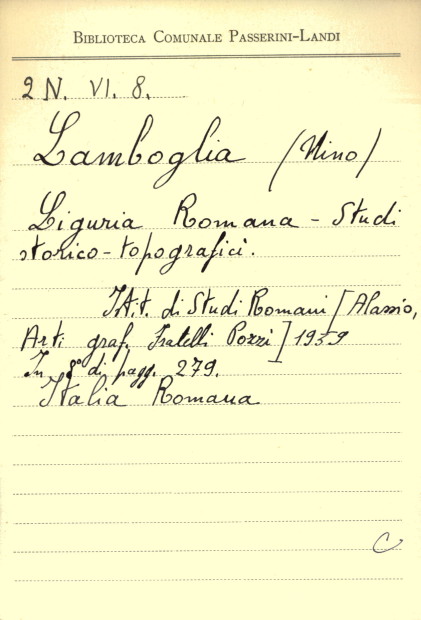 BIBLIOTECA COMUNALE PASSERINI-LANDI
2 N. VI. 8.
Lamboglia (Nino)
Liguria Romana - Studi
storico-topografici.
Istit. di Studi Romani [Alassio,
Arti graf. Fratelli Pozzi] 1939
In 8° di pagg. 279.
Italia Romana
C